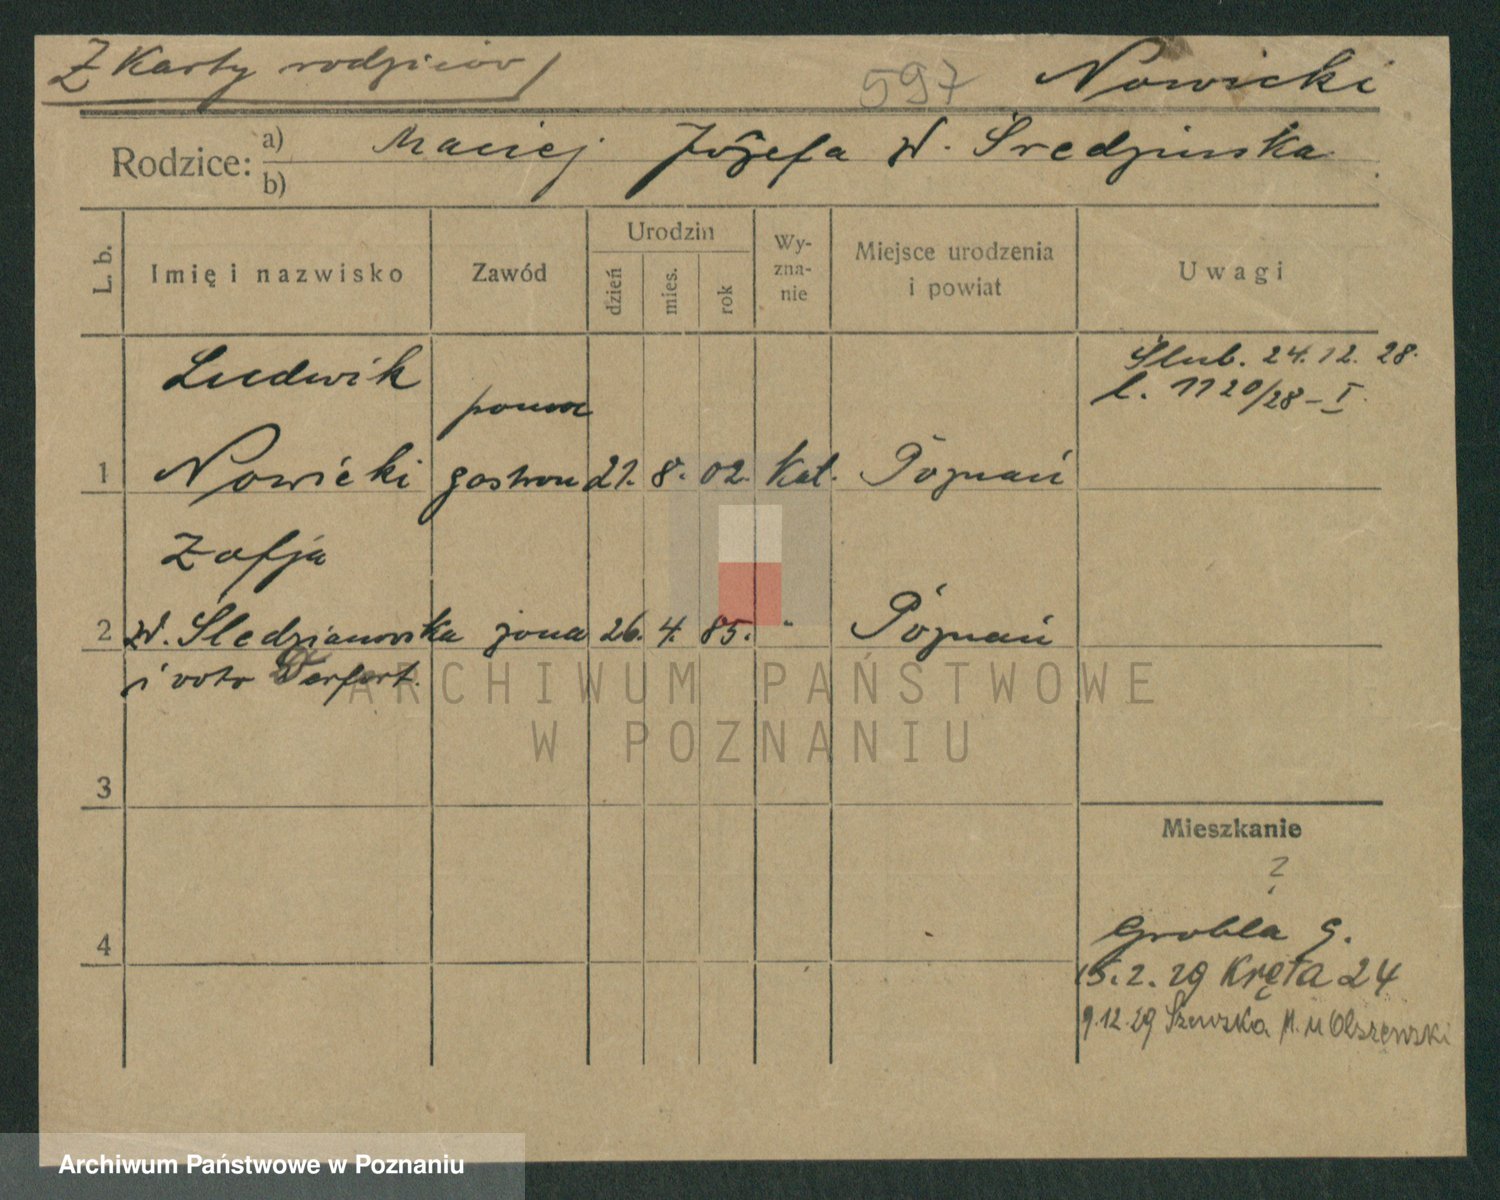 Z Karty rodziców
597 Nowicki
Rodzice: a) b) Maciej Józefa z d. Sredzinska
L. b. Imię i nazwisko Zawód Urodzin dzień mies. rok Wy-zna-nie Miejsce urodzenia i powiat Uwagi
Ślub. 24.12.28.
l. 1120/28-I.
Ludwik
pomoc
1 Nowicki gastron 21. 8. 02. Kat. Poznań
Zofja
2 zd. Sledzianowska żona 26. 4. 85. " Poznań
i voto Derfert.
3
Mieszkanie
?
4
Grobla 9.
15.2.29 Kręta 24
9.12.29 Szewska 11. u Olszewski
ARCHIWUM PAŃSTWOWE
W POZNANIU
Archiwum Państwowe w Poznaniu